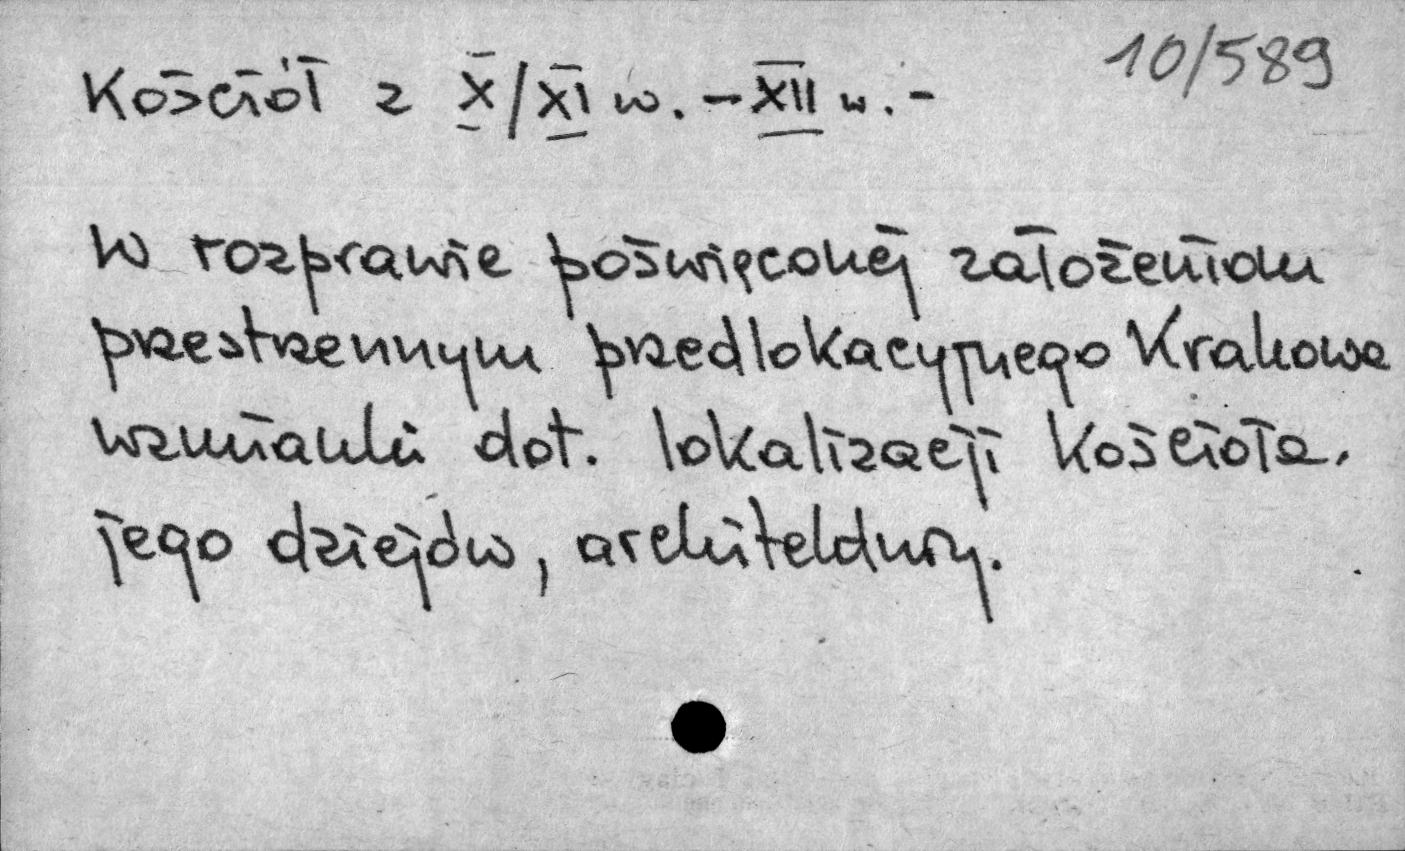 10/589
Kościół z X/XI w. – XII w. –
W rozprawie poświęconej założeniom
przestrzennym przedlokacyjnego Krakowa
wzmianki dot. lokalizacji kościoła,
jego dziejów, architektury.